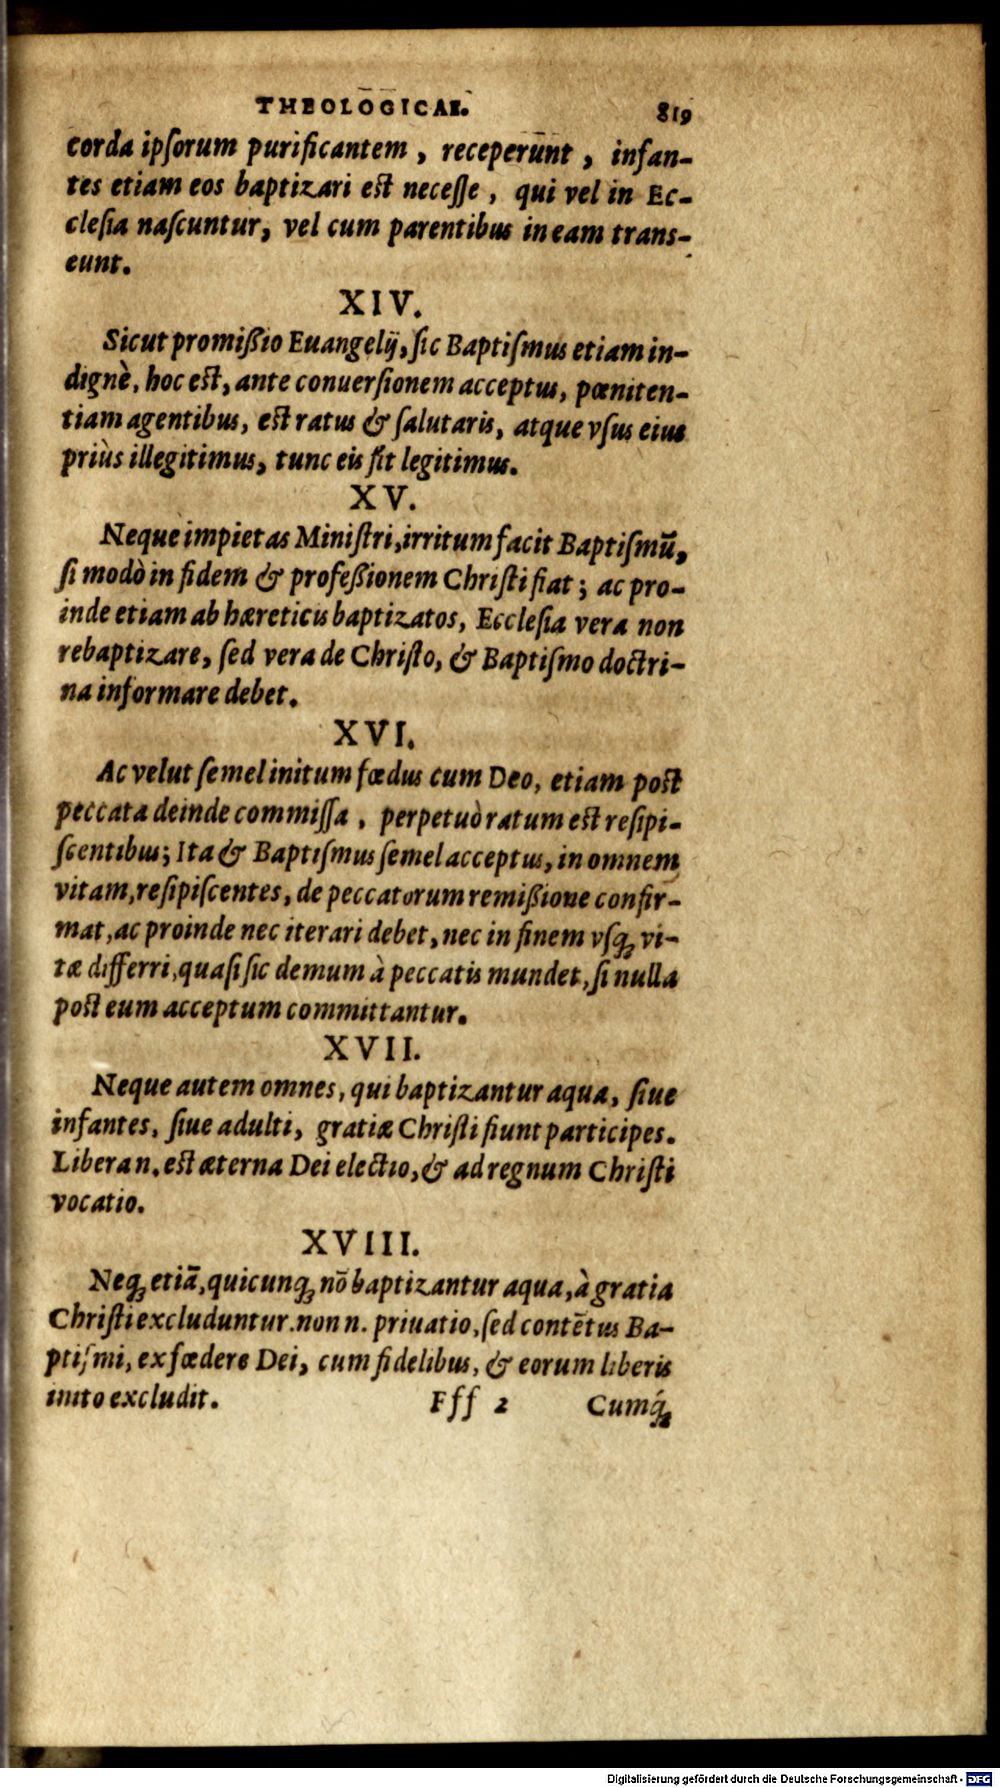 THEOLOGICAE. 819
corda ipſorum purificantem, receperunt, infan-
tes etiam eos baptizari est neceſſe, qui vel in Ec-
cleſia naſcuntur, vel cum parentibus in eam trans-
eunt.
XIV.
Sicut promißio Euangelij, ſic Baptiſmus etiam in-
dignè, hoc est, ante conuerſionem acceptus, pœniten-
tiam agentibus, est ratus & ſalutaris, atque vſus eius
priùs illegitimus, tunc eis fit legitimus.
XV.
Neque impietas Miniſtri, irritum facit Baptiſmū,
ſi modò in fidem & profeßionem Chriſti fiat; ac pro-
inde etiam ab hæreticis baptizatos, Eccleſia vera non
rebaptizare, ſed vera de Chriſto, & Baptiſmo doctri-
na informare debet.
XVI.
Ac velut ſemel initum fœdus cum Deo, etiam post
peccata deinde commiſſa, perpetuò ratum est reſipi-
ſcentibus; Ita & Baptiſmus ſemel acceptus, in omnem
vitam, reſipiſcentes, de peccatorum remißione confir-
mat, ac proinde nec iterari debet, nec in finem vſq; vi-
tæ differri, quaſi ſic demum à peccatis mundet, ſi nulla
post eum acceptum committantur.
XVII.
Neque autem omnes, qui baptizantur aqua, ſiue
infantes, ſiue adulti, gratiæ Chriſti fiunt participes.
Libera n. est æterna Dei electio, & ad regnum Chriſti
vocatio.
XVIII.
Neq; etiā, quicunq; nō baptizantur aqua, à gratia
Chriſti excluduntur. non n. priuatio, ſed contētus Ba-
ptiſmi, ex fœdere Dei, cum fidelibus, & eorum liberis
inito excludit. Fff 2 Cumq́;
Digitalisierung gefördert durch die Deutsche Forschungsgemeinschaft - DFG